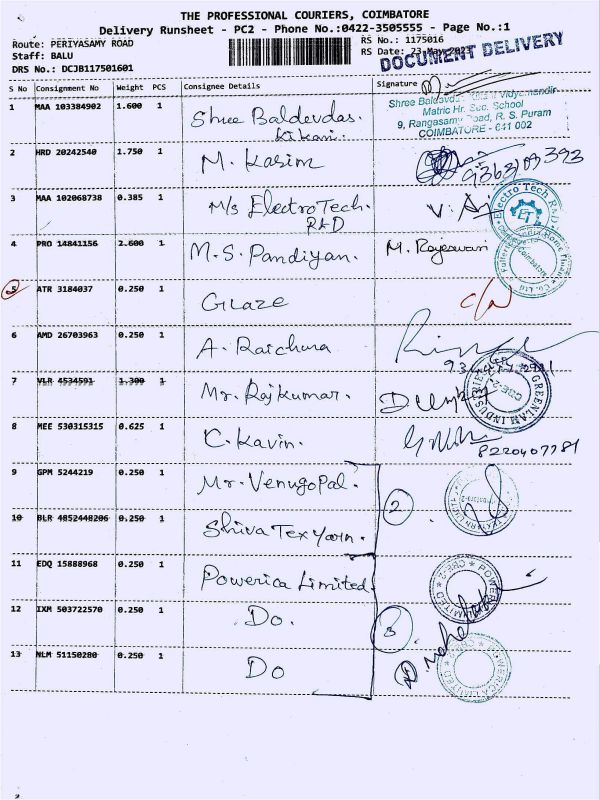 THE PROFESSIONAL COURIERS, COIMBATORE
Delivery Runsheet - PC2 - Phone No.:0422-3505555 - Page No.:1
Route: PERIYASAMY ROAD
RS No.: 1175016
Staff: BALU
RS Date: 23-May-2023
DOCUMENT DELIVERY
DRS No.: DCJB117501601
S No Consignment No Weight PCS Consignee Details Signature
1 MAA 103384902 1.600 1 Shree Baldevdas Kikani.
Matric Hr. Sec. School
9, Rangasamy Road, R. S. Puram
COIMBATORE - 641 002
2 HRD 20242540 1.750 1 M. Kasim
9363109393
3 MAA 102068738 0.385 1 M/s ElectroTech. R&D
Electro Tech R&D
ET
4 PRO 14841156 2.600 1 M.S. Pandiyan. M. Rajeswari
5 ATR 3184037 0.250 1 Glaze
6 AMD 26703963 0.250 1 A. Raichura
7 VLR 4534591 1.300 1 Mr. Rajkumar.
GREENLAM INDUSTRIES
8 MEE 530315315 0.625 1 C. Kavin.
8220407781
9 GPM 5244219 0.250 1 Mr. Venugopal.
2
10 BLR 4052448206 0.250 1 Shiva Tex Yarn.
11 EDQ 15888968 0.250 1 Powerica Limited.
POWERICA LIMITED CBE-2
12 IXM 503722570 0.250 1 Do.
3
13 NLM 51150280 0.250 1 Do
POWERICA LIMITED CBE-2